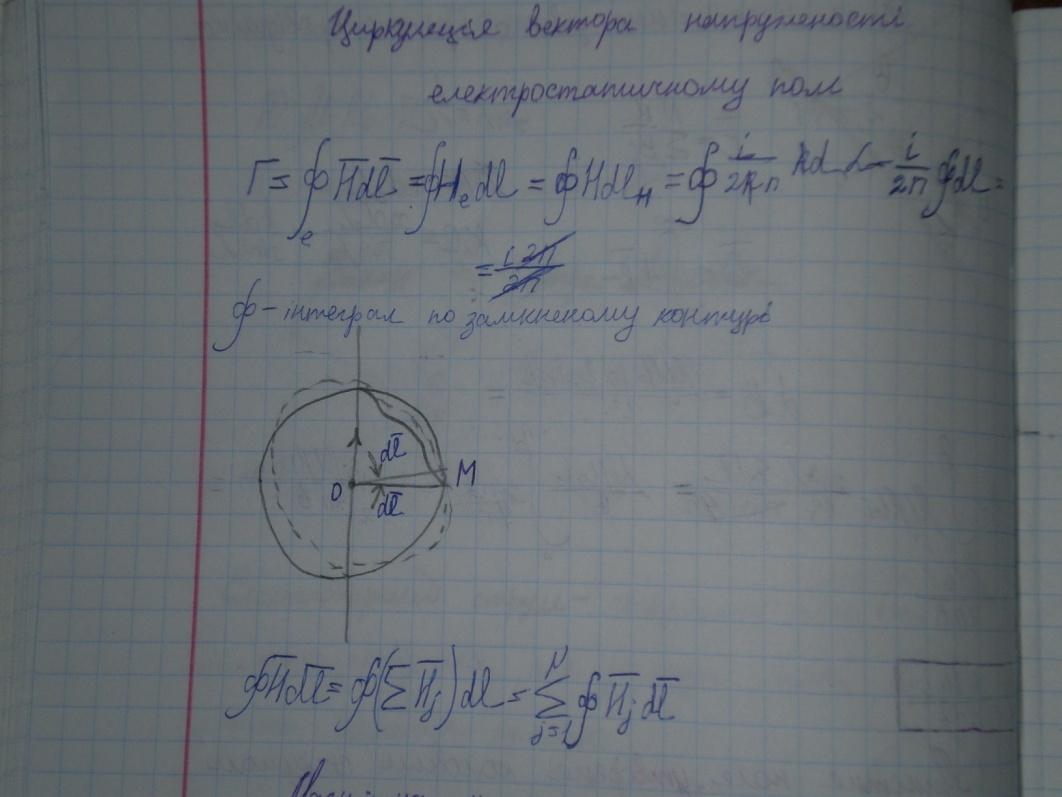 Циркуляція вектора напружености
електростатичному полі
Γ = ∮ₑ H̄dl̄ = ∮Hₑdl = ∮Hdlₙ = ∮ i/2Rπ Rdα = i/2π ∮dl =
= i2π/2π
∮ - інтеграл по замкненому контурі
dl̄
О
М
dl̄
∮H̄dl̄ = ∮(∑H̄j)dl = ∑ⱼ₌₁ᴺ ∮H̄jdl̄